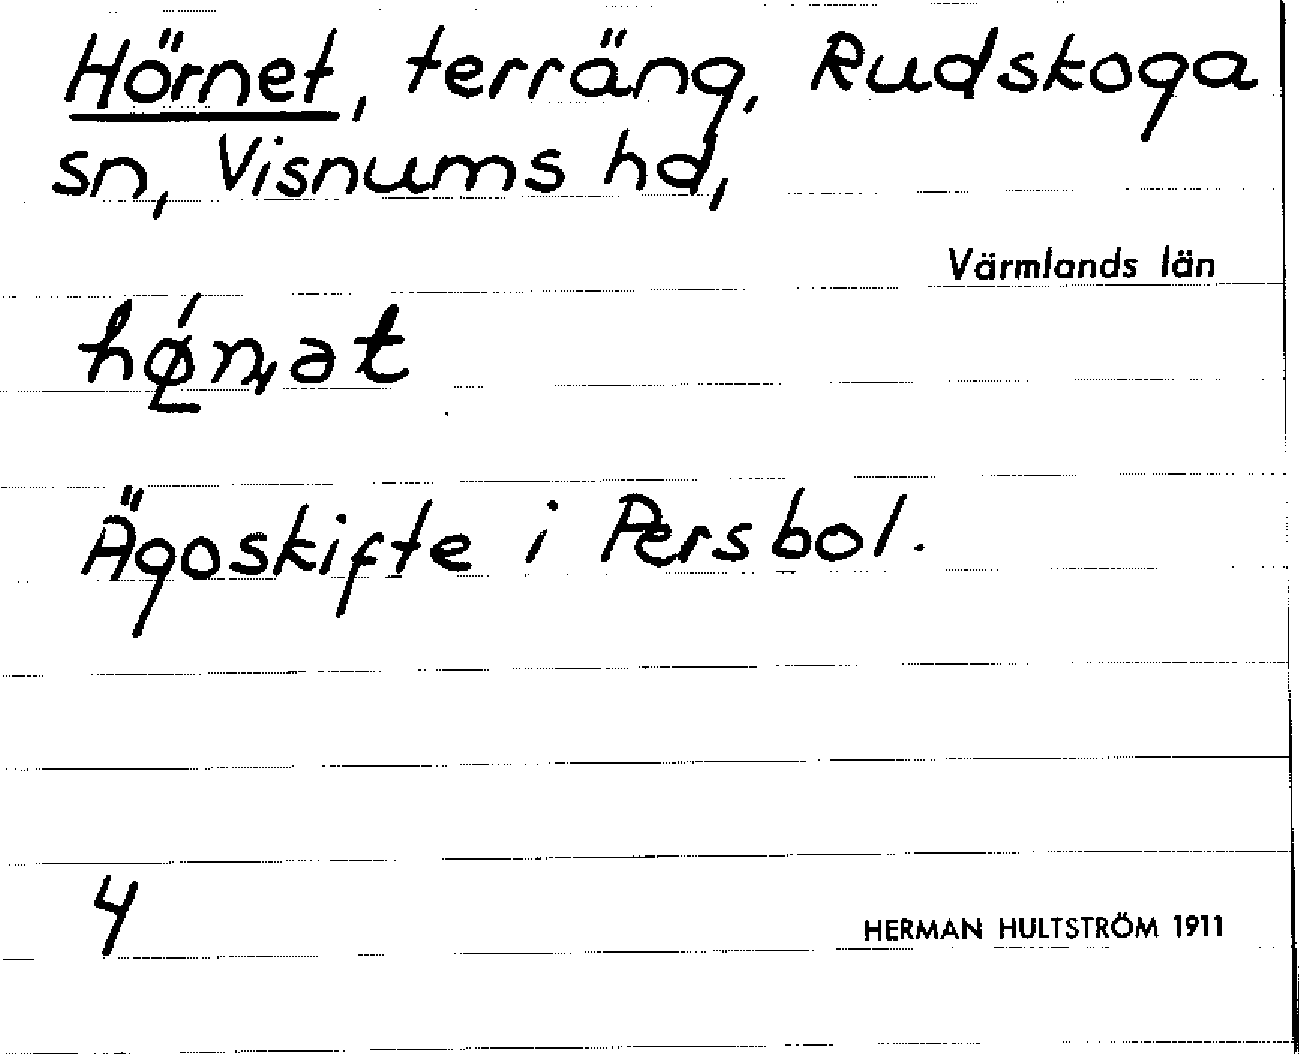 Hörnet, terräng, Rudskoga
sn, Visnums hd,
Värmlands län
hǿ̱n̡ət
Ägoskifte i Persbol.
4
HERMAN HULTSTRÖM 1911